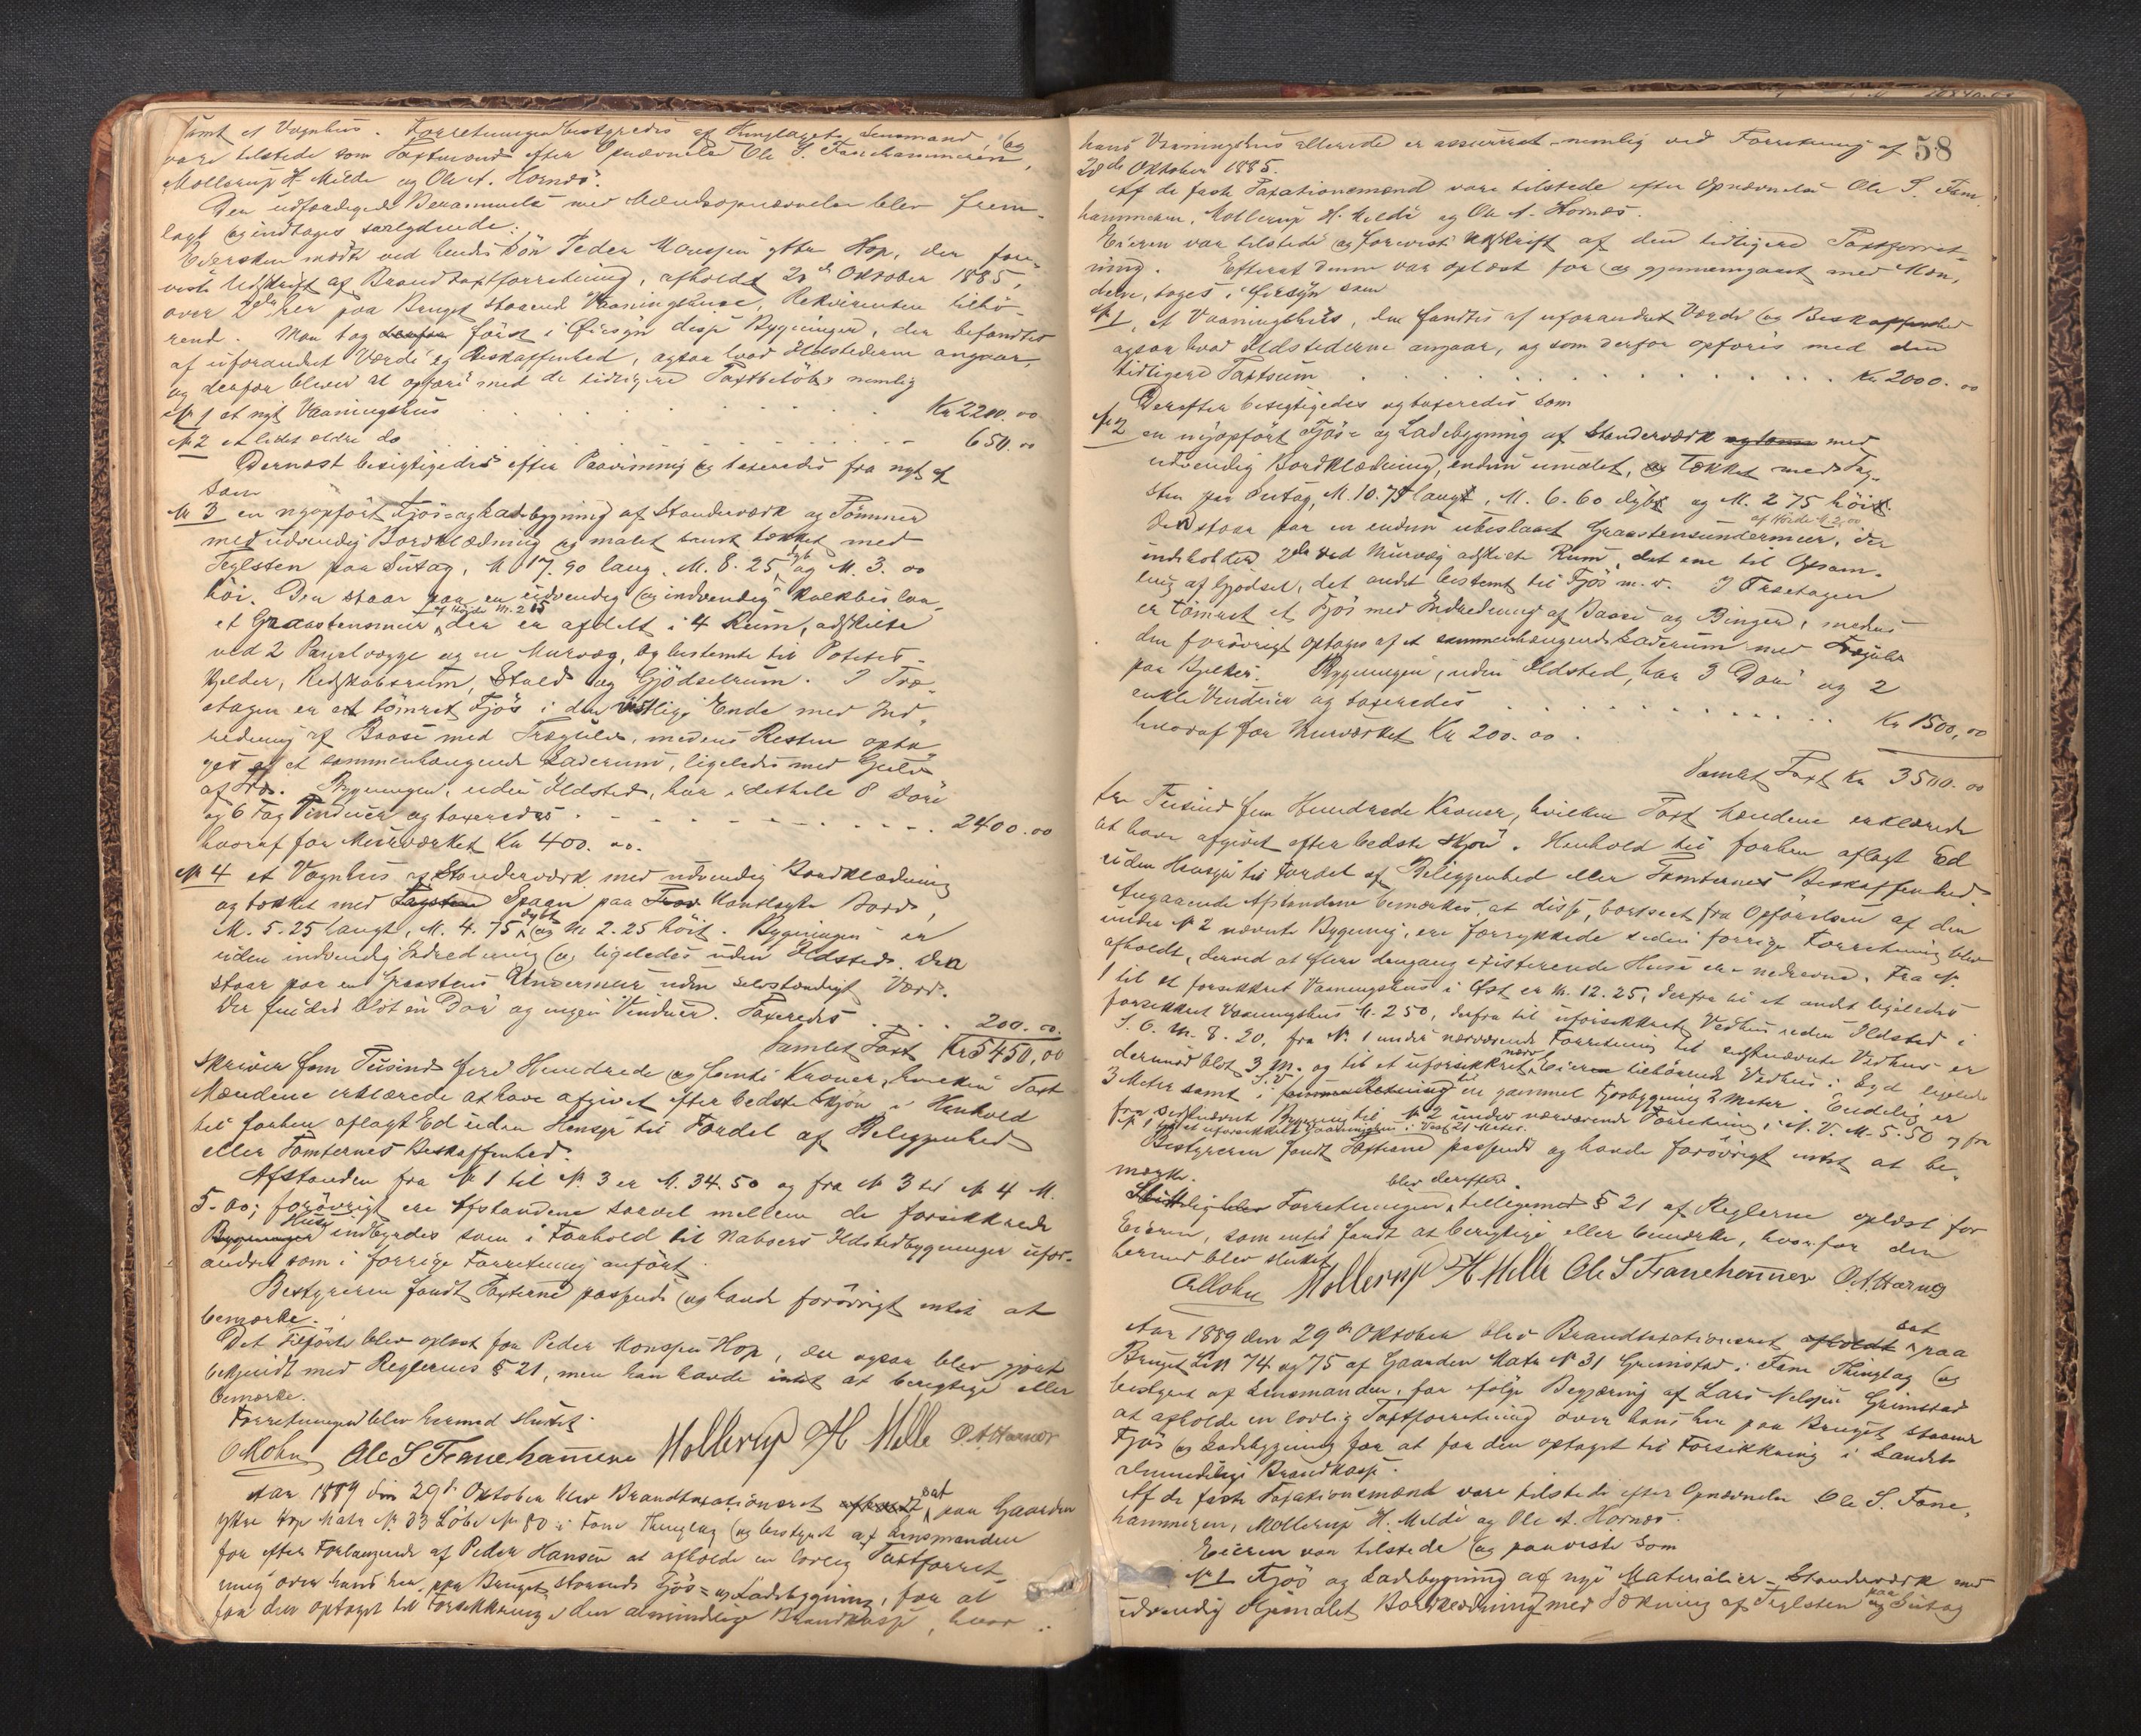 samt et Vognhus. Forretningen bestyredes af Thinglagets Lensmand, og
vare tilstede som Taxtmænd efter Opnævnelse Ole S. Fanehammeren,
Mollerup H. Milde og Ole A. Hornæs.
Den udfærdigede Berammelse med Mændsopnævnelse blev frem-
lagt og indtages saalydende:
Eiersken mødte ved hendes Søn Peder Monssen ytre Hop, der fore-
viste Udskrift af Brandtaxtforretning, afholdt 28de Oktober 1885,
over 2de her paa Bruget staaende Vaaningshuse, Rekvirenten tilhö-
rende. Man tog først i Øiesyn disse Bygninger, der befandtes
af uforandret Værdi og Beskaffenhed, ogsaa hvad Ildstederne angaar,
og derfor bliver at opføre med de tidligere Taxtbeløb, nemlig
N 1 et nyt Vaaningshus . . . . . . . . . Kr 2200.00
N 2 et lidet ældre do . . . . . . . . . 650.00
Dernæst besigtigedes efter Paavisning og taxeredes fra nyt af
som
N 3 en nyopført Fjös- og Ladebygning af Stænderværk og Tömmer
med udvendig Bordklædning og malet samt tækket med
Teglsten paa Sutag, M. 17.90 lang, M. 8.25 dyb og M. 3.00
höi. Den staar paa en udvendig og indvendig kalkbeslaa-
et Graastensmur, af Höide M. 2.15 der er afdelt i 4 Rum, adskilte
ved 2 Panelvægge og en Murvæg, og bestemte til Potetes-
kjelder, Redskabsrum, Stald og Gjödselrum. I Træ-
etagen er et tömret Fjös i den vestlige Ende med Ind-
redning af Baase med Trægulv, medens Resten opta-
ges af et sammenhængende Laderum, ligeledes med Gulv
af Træ. Bygningen, uden Ildsted, har i det hele 8 Döre
og 6 Fag Vinduer og taxeredes . . . . . . . 2400.00
hvoraf for Murværket Kr 400.00.
N 4 et Vognhus af Stænderværk med udvendig Bordklædning
og tækket med Tagsten Spaan paa Kantlagte Bord,
M. 5.25 langt, M. 4.75 dybt og M. 2.25 höit. Bygningen er
uden indvendig Indredning og ligeledes uden Ildsted. Den
staar paa en Graastens Undermur uden selvstændigt Værd.
Der findes blot en Dör og ingen Vinduer. Taxeredes . . . 200.00.
Samlet Taxt Kr 5450,00
skriver fem Tusinde fire Hundrede og femti Kroner, hvilken Taxt
Mændene erklærede at have afgivet efter bedste Skjön i Henhold
til forhen aflagt Ed uden Hensyn til Fordel af Beliggenhed
eller Tomternes Beskaffenhed.
Afstanden fra N 1 til N. 3 er M. 34.50 og fra N 3 til N 4 M.
5.00; forövrigt ere Afstandene saavel mellem de forsikkrede
Bygninger Huse indbyrdes som i Forhold til Naboers Ildstedbygninger ufor-
andret som i forrige Forretning anført.
Bestyreren fandt Taxterne passende og havde forövrigt intet at
bemærke.
Det Tilförte blev oplæst for Peder Monssen Hop, der ogsaa blev gjort
bekjendt med Reglernes § 21, men han havde intet at berigtige eller
bemærke.
Forretningen blev hermed sluttet.
OMohn Ole S Fanehammeren Mollerup H Milde O A Hornæs
Aar 1889 den 29de Oktober blev Brandtaxationsret afholdt sat paa Gaarden
ytre Hop Matr N. 33 Löbe No 80 i Fane Thinglag og bestyret af Lensmanden
for efter Forlangende af Peder Hansen at afholde en lovlig Taxtforret-
ning over hans her paa Bruget staaende Fjös- og Ladebygning, for at
faa den optaget til Forsikkring i den almindelige Brandkasse, hvor
58
hans Vaaningshus allerede er assureret nemlig ved Forretning af
28de Oktober 1885.
Af de faste Taxationsmænd vare tilstede efter Opnævnelse Ole S. Fane-
hammeren, Mollerup H. Milde og Ole A. Hornæs.
Eieren var tilstede og foreviste Udskrift af den tidligere Taxtforret-
ning. Efterat denne var oplæst for og gjennemgaaet med Mæn-
dene, toges i Øiesyn som
N 1, et Vaaningshus, der fandtes af uforandret Værdi og Beskaffenhed
ogsaa hvad Ildstederne angaar, og som derfor opføres med den
tidligere Taxtsum . . . . . . . . . . Kr 2000.00
Derefter besigtigedes og taxeredes som
N 2 en nyopført Fjös- og Ladebygning af Stænderværk med
udvendig Bordklædning, endnu umalet, og tækket med Tag-
sten paa Sutag, M. 10.75 lang, M. 6.60 dyb og M. 2 75 höi.
Den staar paa en endnu ubeslaaet Graastensundermur, af Höide M 2.00 der
indeholder 2de ved Murvæg adskilte Rum, det ene til Opsam-
ling af Gjödsel, det andet bestemt til Fjös m. v. I Træetagen
er tömret et Fjös med Indredning af Baase og Binger, medens
den forövrigt optages af et sammenhængende Laderum med Trægulv
paa Bjelker. Bygningen, uden Ildsted, har 3 Döre og 2
enkle Vinduer og taxeredes . . . . . . . . . Kr 1500,00
hvoraf for Murværket Kr 200.00.
Samlet Taxt Kr 3500.00
tre Tusind fem Hundrede Kroner, hvilken Taxt Mændene erklærede
at have afgivet efter bedste Skjön i Henhold til forhen aflagt Ed
uden Hensyn til Fordel af Beliggenhed eller Tomternes Beskaffenhed.
Angaaende Afstandene bemærkes, at disse, bortseet fra Opförelsen af den
under N 2 nævnte Bygning, ere forrykkede siden forrige Forretning blev
afholdt, derved at flere dengang existerende Huse ere nedrevne. Fra N.
1 til et forsikkret Vaaningshus i Øst er M. 12.25, derfra til et andet ligeledes
forsikkret Vaaningshus M. 2 50, derfra til uforsikkret Vedhus uden Ildsted i
S. O. M. 8.20, fra N. 1 under nærværende Forretning til sidstnævnte Vedhus er
derimod blot 3 M. og til et uforsikkret, Eieren tilhörende Vedhus i Syd ligeledes
3 Meter samt i S.V. til en gammel Fjösbygning 2 Meter. Endelig er
fra sidstnævnte Bygning til N 2 under nærværende Forretning i N. V. M. 5.50 og fra
N 1 til et uforsikkret Vaaningshus i Vest 21 Meter.
Bestyreren fandt Taxterne passende og havde forövrigt intet at be-
mærke.
Sluttelig blev Forretningen blev derefter tilligemed § 21 af Reglerne oplæst for
Eieren, som intet fandt at berigtige eller bemærke, hvorfor den
hermed blev sluttet.
OMohn Mollerup H Milde Ole S Fanehammer O. A. Hornæs
Aar 1889 den 29de Oktober blev Brandtaxationsret afholdt sat paa
Bruget L.N 74 og 75 af Gaarden Matr N 31 Grimstad i Fane Thinglag og
bestyret af Lensmanden, for ifölge Begjæring af Lars Nilssen Grimstad
at afholde en lovlig Taxtforretning over hans her paa Bruget staaende
Fjös og Ladebygning for at faa den optaget til Forsikkring i Landets
almindelige Brandkasse.
Af de faste Taxationsmænd vare tilstede efter Opnævnelse Ole S. Fane-
hammeren, Mollerup H. Milde og Ole A. Hornæs.
Eieren var tilstede og paaviste som
N 1 Fjös og Ladebygning af nye Materialier - Stænderværk med
udvendig umalet Bordklædning med Tækning af Teglsten paa Sutag